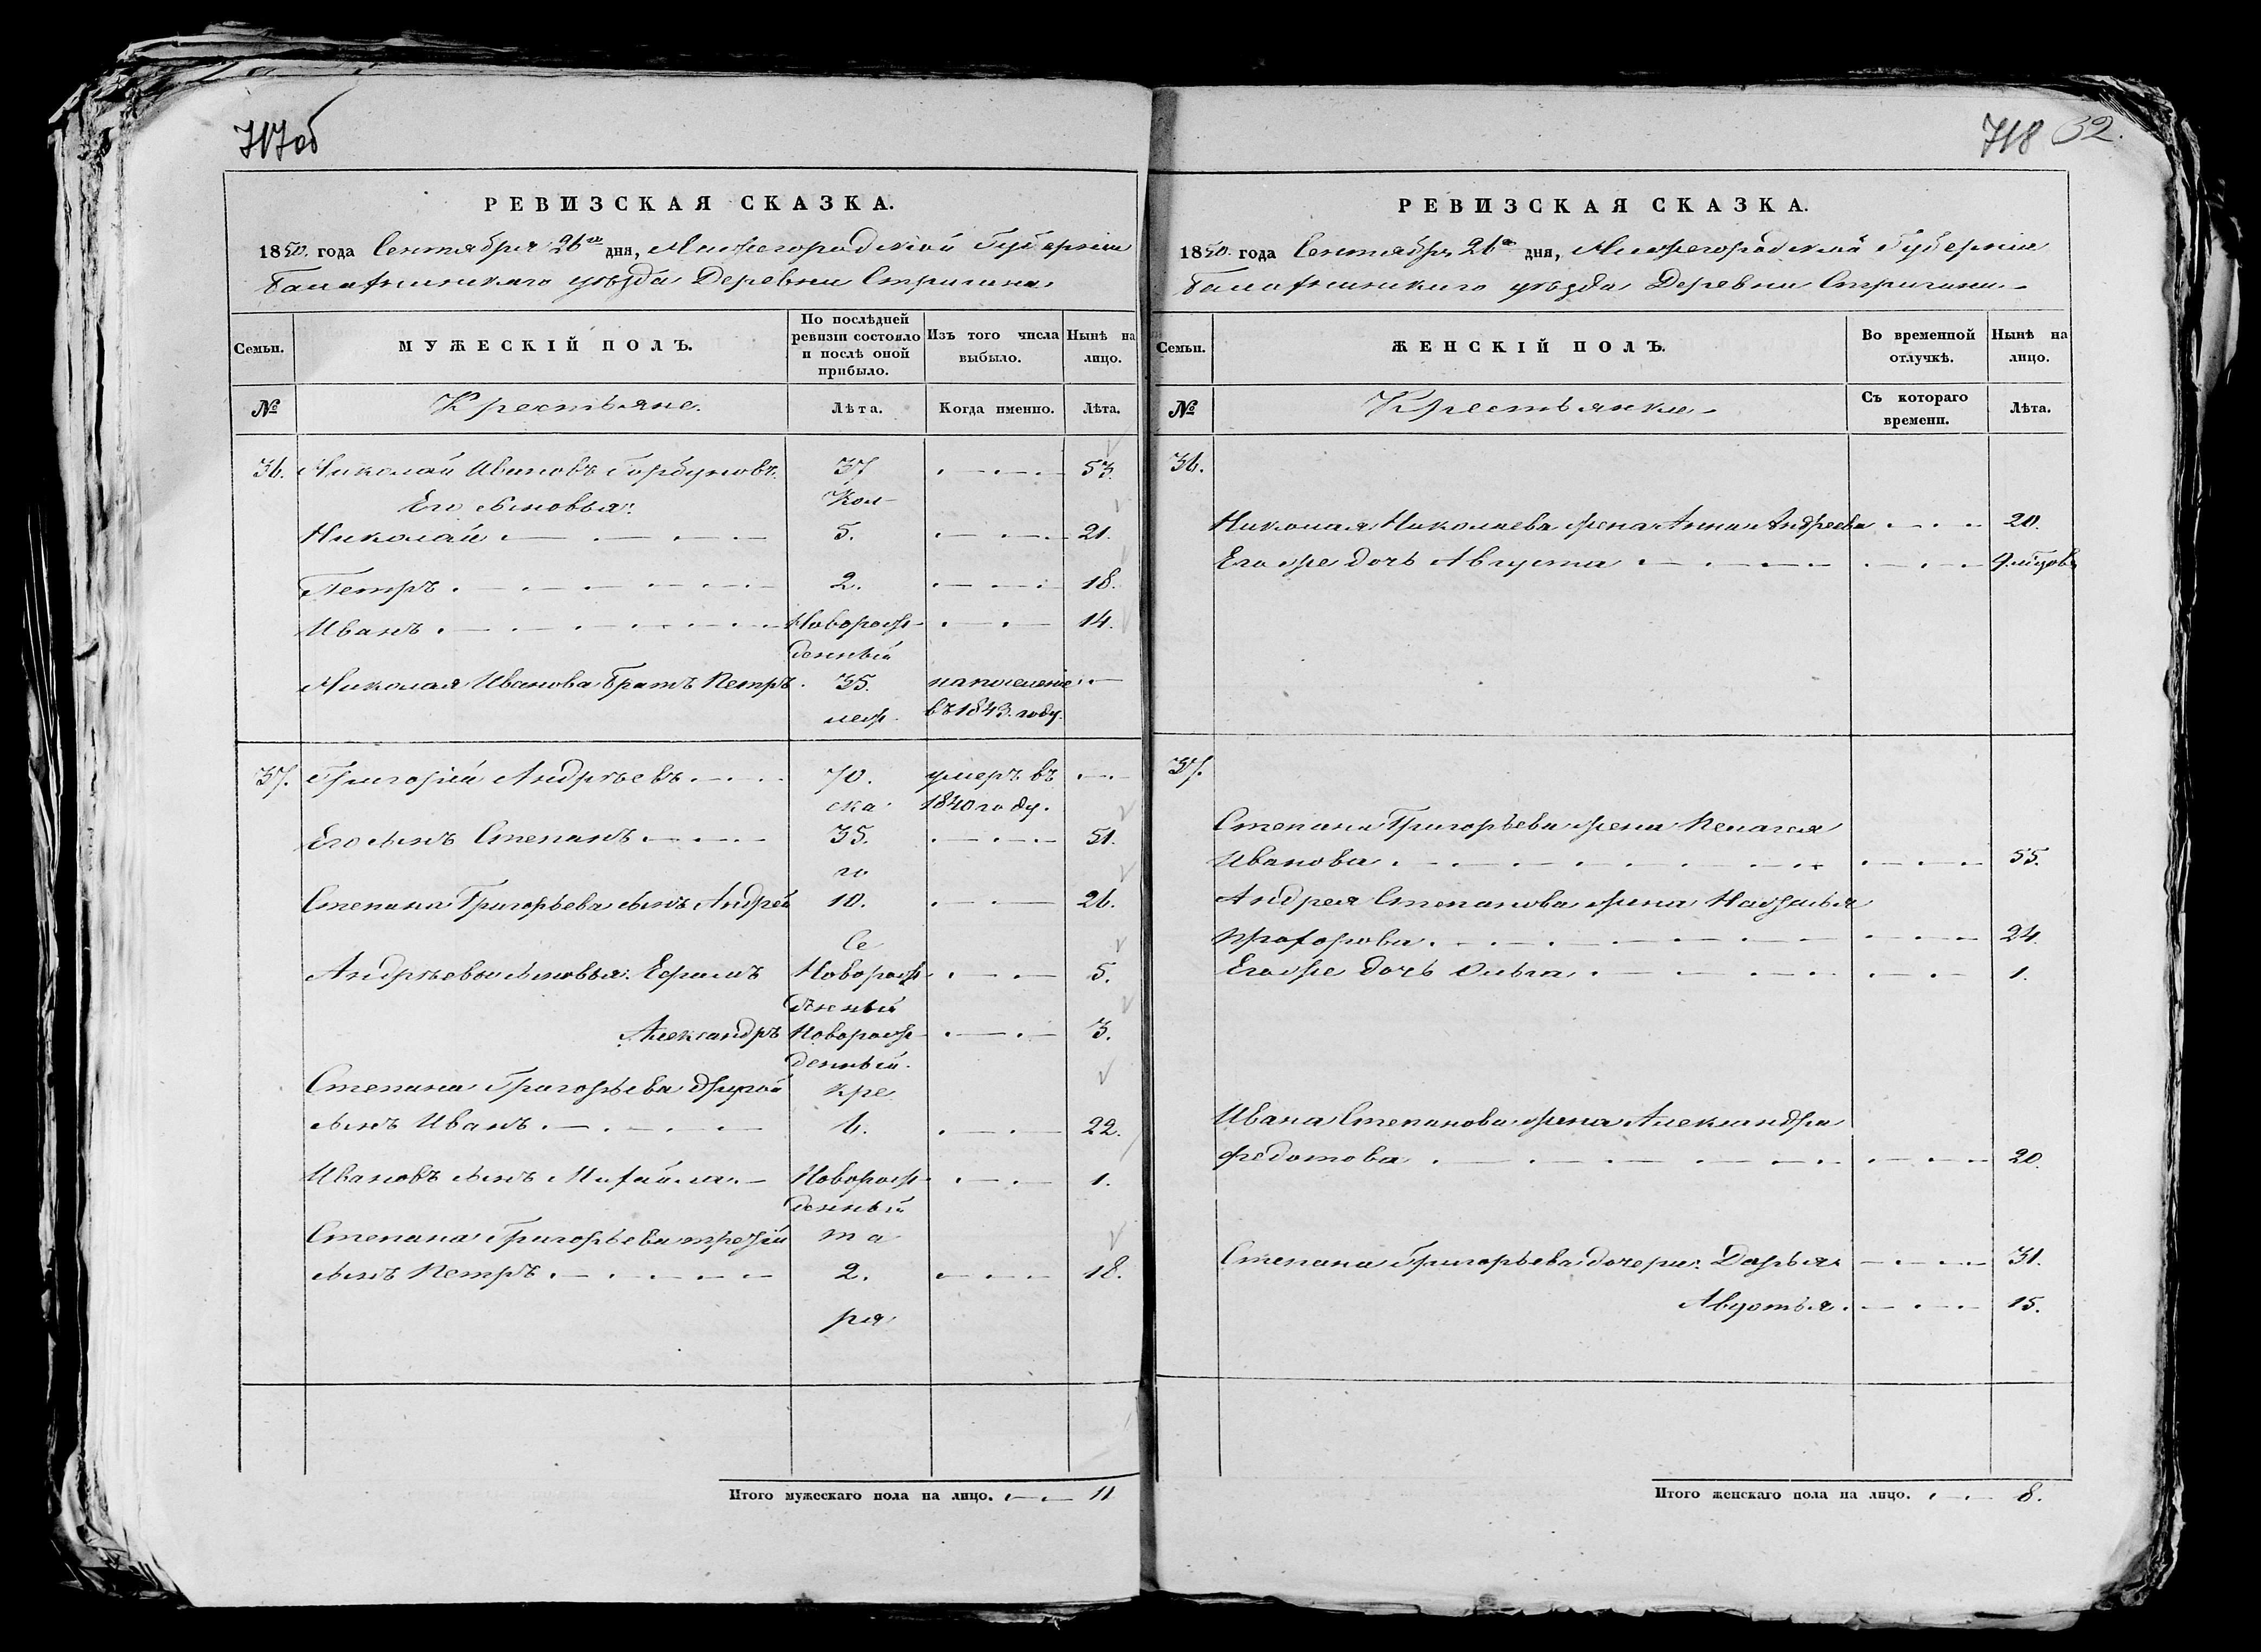 717об
РЕВИЗСКАЯ СКАЗКА.
1850. года Сентября 26го дня, Нижегородской Губернии
Балахнинскаго уѣзда Деревни Стригина
Семьи.
МУЖЕСКІЙ ПОЛЪ.
По послѣдней ревизіи состояло и послѣ оной прибыло.
Изъ того числа выбыло.
Нынѣ на лицо.
№ Крестьяне. Лѣта. Когда именно. Лѣта.
36. Николай Ивановъ Горбуновъ. 37 53.
Его сыновья: Кол-
Николай 5. 21.
Петръ 2. 18.
Иванъ Новорож- 14.
денный
Николая Иванова братъ Петръ. 35. на поселеніе
леж. въ 1843. году.
37. Григорій Андрѣевъ 70. умеръ въ
ска 1840 году.
Его сынъ Степанъ 35. 51.
го
Степана Григорьева сынъ Андрей 10. 26.
Се
Андрѣевы сыновья: Ефимъ Новорож- 5.
денный
Александръ Новорож- 3.
денный.
Степана Григорьева другой кре
сынъ Иванъ 6. 22.
Ивановъ сынъ Михайла Новорож- 1.
денный
Степана Григорьева третій та
сынъ Петръ 2. 18.
ря
Итого мужескаго пола на лицо. 11
718 32.
РЕВИЗСКАЯ СКАЗКА.
1850. года Сентября 26го дня, Нижегородской Губернии
Балахнинскаго уѣзда Деревни Стригина
Семьи.
ЖЕНСКІЙ ПОЛЪ.
Во временной отлучкѣ.
Нынѣ на лицо.
№ Крестьянки Съ котораго времени. Лѣта.
36.
Николая Николаева жена Анна Андреева 20.
Его же дочь Августа 9. мѣсяцовъ
37.
Степана Григорьева жена Пелагея
Иванова 55.
Андрея Степанова жена Наталья
Прохорова 24.
Его же дочь Ольга 1.
Ивана Степанова жена Александра
Федотова 20.
Степана Григорьева дочери: Дарья 31.
Авдотья 15.
Итого женскаго пола на лицо. 8.